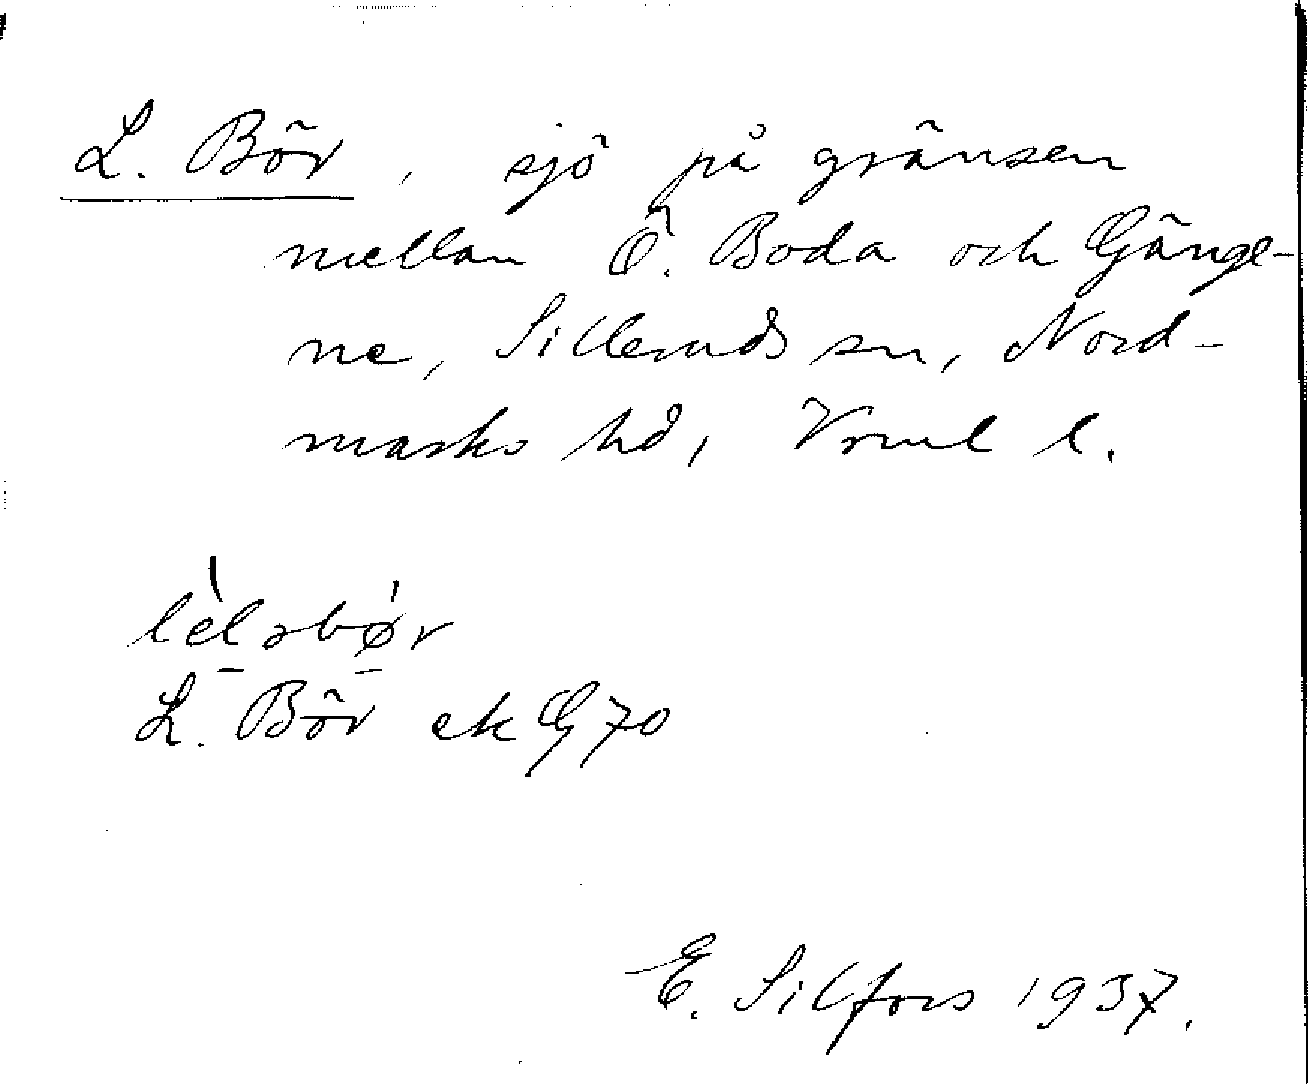 L. Bör, sjö på gränsen
mellan Ö. Boda och Gänge-
ne, Silleruds sn, Nord-
marks hd, Vrml l.
L. Bör ek G 70
E. Silfors 1937.